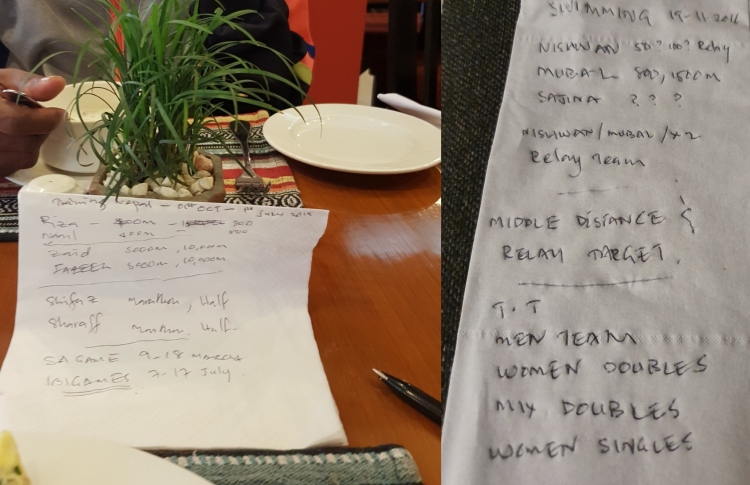 Training Nepal - OCT - 1st July 2015
Riza - 400m - 800
Naail 400m 800
Zaid 5000m, 10,000m
5000m, 10,000m
Shifaz Marathon, Half
Sharaff Marathon, Half
SA GAME 9-18 March
IOIGAMES 7-17 July
SWIMMING 19-11-2016
NISHWAN 50? 100? Relay
MUBAL 800, 1500m
SAJINA ? ? ?
NISHWAN/MUBAL/+2
Relay Team
MIDDLE DISTANCE &
RELAY TARGET.
T.T
MEN TEAM
WOMEN DOUBLES
MIX DOUBLES
WOMEN SINGLES